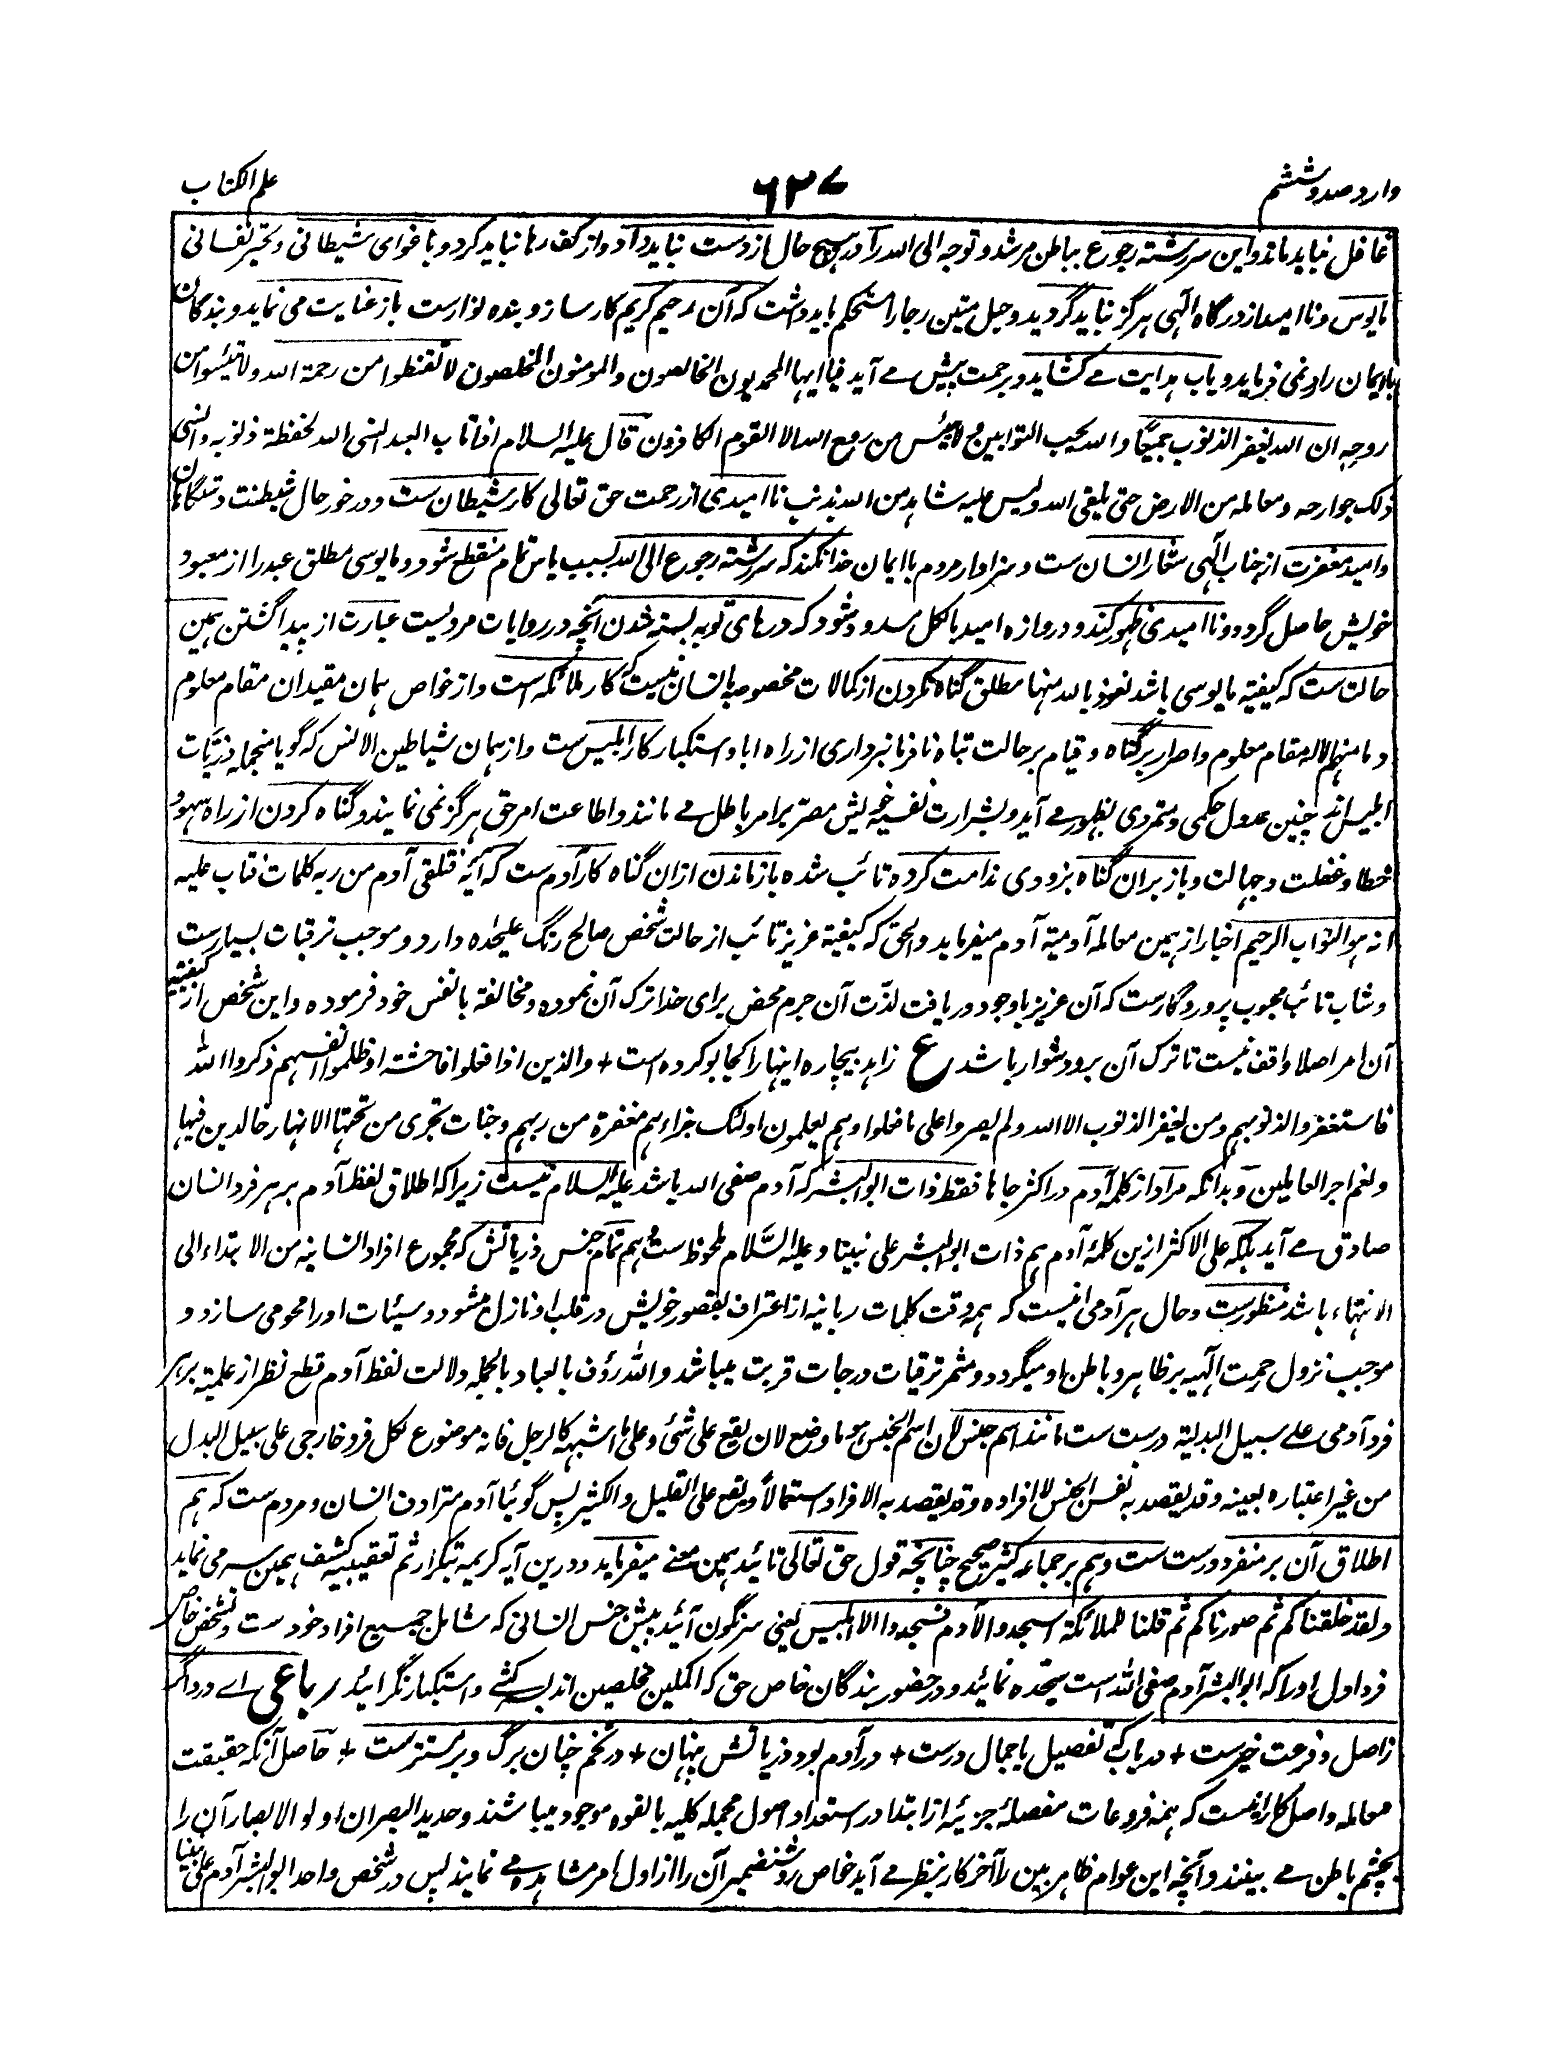 وارد صد و ششم
۶۲۷
علم الکتاب
غافل نباید ماند و این سررشته رجوع بباطن مرشد و توجه الی الله را در هیچ حال از دست نباید داد و از کف رها نباید کرد و باغوای شیطانی و نفسانی
مایوس و ناامید از درگاه الٓهی هرگز نباید گردید و حبل متین رجا را مستحکم باید داشت که آن رحیم کریم کارساز و بنده نواز ست باز عنایت می نماید و بندگان
باایمان را رد نمی فرماید و باب هدایت مے کشاید و برحمت پیش مے آید فیا ایها المحمدیون الخالصون والمومنون المخلصون لا تقنطوا من رحمة الله ولا تیئسوا من
روحه ان الله یغفر الذنوب جمیعًا والله یحب التوابین و لا ییئس من روح الله الا القوم الکافرون قال علیه السلام اذا تاب العبد انسی الله الحفظة ذنوبه وانسی
ذلک جوارحه و معالمه من الارض حتی یلقی الله ولیس علیه شاهد من الله بذنب ناامیدی از رحمت حق تعالی کار شیطان ست و در خور حال شیطنت دستگاهان
و امید مغفرت از جناب الٓهی شعار انسان ست و سزاوار مردم باایمان خدا نکند که سررشته رجوع الی الله بسبب یاس تمام منقطع شود و مایوسی مطلق عبد را از معبود
خویش حاصل گردد و ناامیدی ظهور کند و دروازه امید بالکل مسدود شود که درهای توبه بسته شدن آنچه در روایات مرویست عبارت از پیدا گشتن همین
حالت ست که کیفیة مایوسی باشد نعوذ بالله منها مطلق گناه نکردن از کمالات مخصوصه بانسان نیست که کار ملائکه است و از خواص همان مقیدان مقام معلوم
و ما منهم الا له مقام معلوم و اصرار بر گناه و قیام بر حالت تباه نافرمانبرداری از راه ابا و استکبار کار ابلیس ست و از همان شیاطین الانس که گویا منجمله ذریّات
ابلیس اند چنین عدول حکمی و متمردی بظهور مے آید و بشرارت نفسیه خویش مصرّ بر امر باطل مے مانند و اطاعت امر حق هرگز نمی نمایند و گناه کردن از راه سهو و
خطا و غفلت و جهالت و باز بران گناه بزودی ندامت کرده تائب شده بازماندن ازان گناه کار آدم ست که آیۀ فتلقی آدم من ربه کلمات فتاب علیه
انه هو التواب الرحیم اخبار از همین معامله آدمیة آدم میفرماید و الحق که کیفیة عزیز تائب از حالت شخص صالح رنگ علیحده دارد و موجب ترقیات بسیار ست
و شاب تائب محبوب پروردگار ست که آن عزیز باوجود دریافت لذّت آن جرم محض برای خدا ترک آن نموده و مخالفة بانفس خود فرموده و این شخص از کیفیة
آن امر اصلا واقف نیست تا ترک آن برو دشوار باشد ع زاهد بیچاره اینها را کجا بو کرده است + والذین اذا فعلوا فاحشة او ظلموا انفسهم ذکروا الله
فاستغفروا لذنوبهم ومن یغفر الذنوب الا الله ولم یصروا علی ما فعلوا وهم یعلمون اولئک جزاءهم مغفرة من ربهم وجنات تجری من تحتها الانهار خالدین فیها
ونعم اجر العاملین و بدانکه مراد از کلمۀ آدم در اکثر جاها فقط ذات ابو البشر که آدم صفی الله باشد علیه السلام نیست زیرا که اطلاق لفظ آدم بر هر فرد انسان
صادق مے آید بلکه علی الاکثر ازین کلمۀ آدم هم ذات ابو البشر علی نبینا و علیه السّلام ملحوظ ست و هم تمام جنس ذریاتش که مجموع افراد انسانیه من الابتداء الی
الانتهاء باشد منظور ست و حال هر آدمی انیست که همه وقت کلمات ربانیه از اعتراف بقصور خویش در قلب او نازل میشود و سیئات او را محو می سازد و
موجب نزول رحمت الٓهیه بر ظاهر و باطن او میگردد و مثمر ترقیات درجات قربت میباشد والله رؤف بالعباد بالجمله دلالت لفظ آدم قطع نظر از علمیة بر هر
فرد آدمی علے سبیل البدلیة درست ست مانند اسم جنس لان اسم الجنس هو ما وضع لان یقع علی شئی وعلی ما اشبهه کالرجل فانه موضوع لکل فرد خارجی علی سبیل البدل
من غیر اعتباره بعینه وقد یقصد به نفس الجنس لا افراده وقد یقصد به الافراد استعمالاً و یقع علی القلیل والکثیر پس گوئیا آدم مترادف انسان و مردم ست که هم
اطلاق آن بر منفرد درست ست و هم بر جماعه کثیر صحیح چنانچه قول حق تعالی تائید همین معنے میفرماید و درین آیه کریمه بتکرار ثم تعقیبیه کشف همین سر می نماید
ولقد خلقناکم ثم صورناکم ثم قلنا للملائکة اسجدوا لآدم فسجدوا الا ابلیس یعنی سرنگون آئید پیش جنس انسانی که شامل جمیع افراد خود ست و شخص خاص
فرد اول او را که ابو البشر آدم صفی الله است سجده نمائید و در حضور بندگان خاص حق که اکملین مخلصین اند سرکشے و استکبار نگرائید رباعی اے درد اگر
زاصل و فرعت خبرست + دریاب که تفصیل باجمال درست + در آدم بود ذریاتش پنهان + در تخم چنان برگ و بر مستترست + حاصل آنکه حقیقت
معامله و اصل کار انیست که همه فروعات مفصلۀ جزئیه از ابتدا در استعداد اصول مجمله کلیه بالقوه موجود میباشند و حدید البصران و اولو الابصار آن را
بچشم باطن مے بینند و آنچه این عوام ظاهر بین را آخر کار بنظر مے آید خاص روشنضمیر آن را از اول امر مشاهده مے نمایند پس در شخص واحد ابو البشر آدم علی نبینا